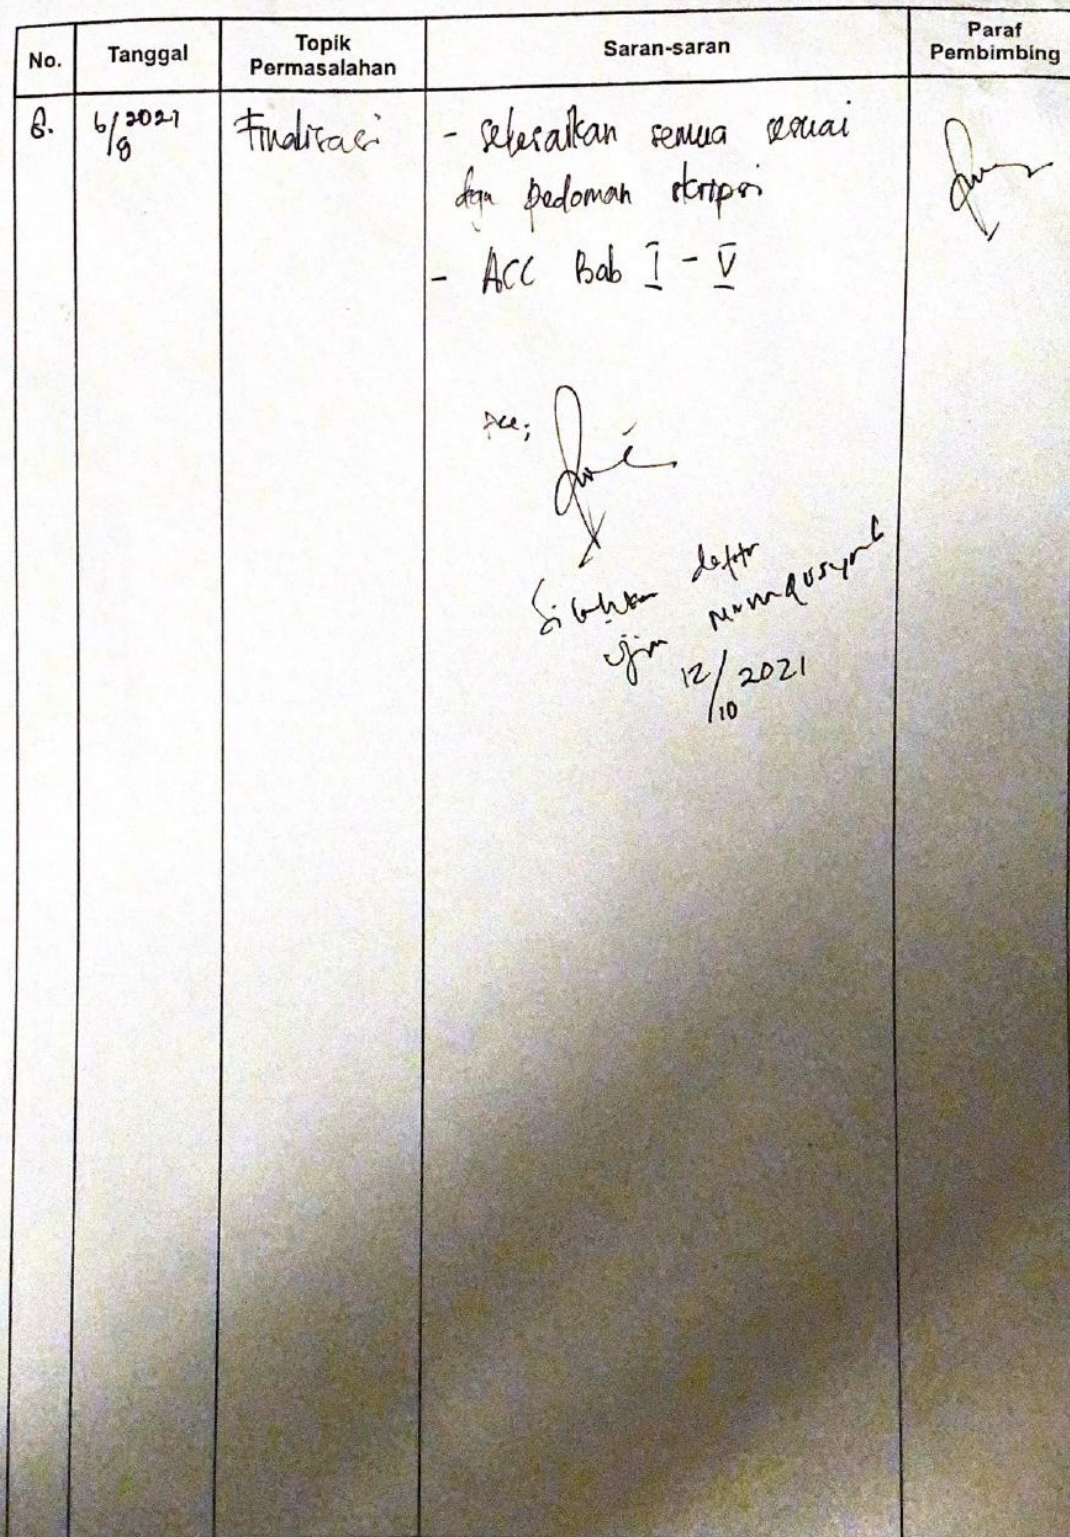 No. Tanggal Topik Permasalahan Saran-saran Paraf Pembimbing
8. 6/8 2021 Finalisasi - selesaikan semua sesuai
dgn pedoman skripsi
- ACC Bab I - V
Acc;
Silahkan daftar
ujian munaqosyah
12/10 2021